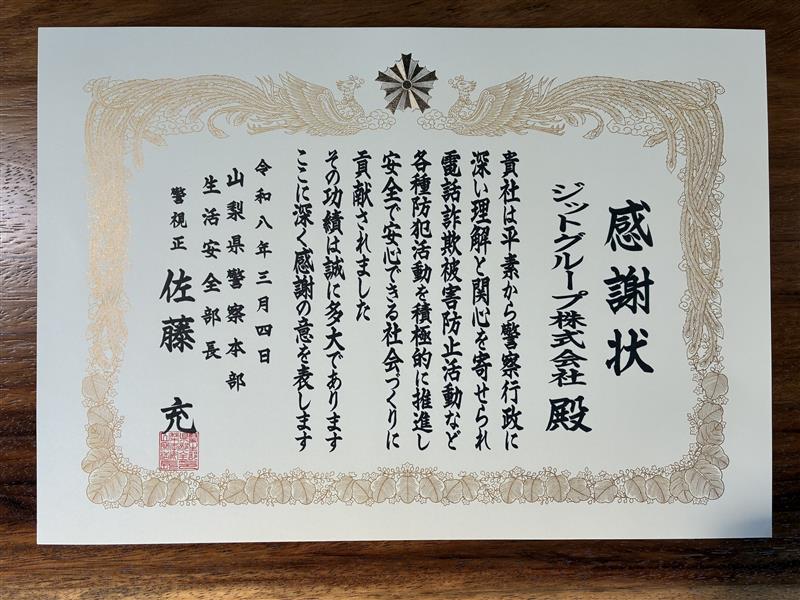 感謝状
ジットグループ株式会社 殿
貴社は平素から警察行政に
深い理解と関心を寄せられ
電話詐欺被害防止活動など
各種防犯活動を積極的に推進し
安全で安心できる社会づくりに
貢献されました
その功績は誠に多大であります
ここに深く感謝の意を表します
令和八年三月四日
山梨県警察本部
生活安全部長
警視正 佐藤 充